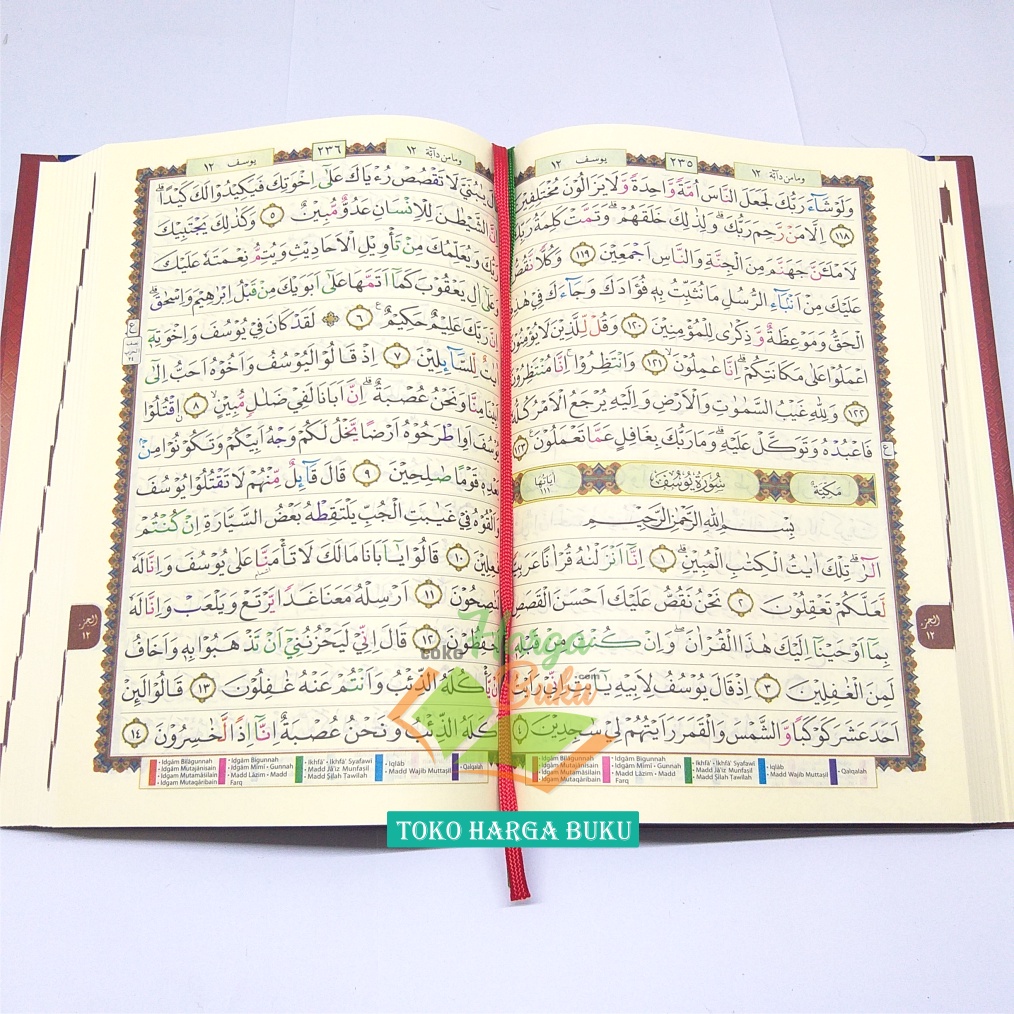 ومامن دآبّة ١٢
٢٣٥
يوسف ١٢
وَلَوْ شَآءَ رَبُّكَ لَجَعَلَ النَّاسَ اُمَّةً وَّاحِدَةً وَّلَا يَزَالُوْنَ مُخْتَلِفِيْنَ
١١٨ اِلَّا مَنْ رَّحِمَ رَبُّكَ ۗوَلِذٰلِكَ خَلَقَهُمْ ۗوَتَمَّتْ كَلِمَةُ رَبِّكَ
لَاَمْلَـَٔنَّ جَهَنَّمَ مِنَ الْجِنَّةِ وَالنَّاسِ اَجْمَعِيْنَ ١١٩ وَكُلًّا نَّقُصُّ
عَلَيْكَ مِنْ اَنْۢبَآءِ الرُّسُلِ مَا نُثَبِّتُ بِهٖ فُؤَادَكَ وَجَآءَكَ فِيْ هٰذِهِ
الْحَقُّ وَمَوْعِظَةٌ وَّذِكْرٰى لِلْمُؤْمِنِيْنَ ١٢٠ وَقُلْ لِّلَّذِيْنَ لَا يُؤْمِنُوْنَ
اعْمَلُوْا عَلٰى مَكَانَتِكُمْۗ اِنَّا عٰمِلُوْنَۙ ١٢١ وَانْتَظِرُوْاۚ اِنَّا مُنْتَظِرُوْنَ
١٢٢ وَلِلّٰهِ غَيْبُ السَّمٰوٰتِ وَالْاَرْضِ وَاِلَيْهِ يُرْجَعُ الْاَمْرُ كُلُّهٗ
فَاعْبُدْهُ وَتَوَكَّلْ عَلَيْهِۗ وَمَا رَبُّكَ بِغَافِلٍ عَمَّا تَعْمَلُوْنَ ١٢٣
مَكِّيَّة سُوْرَةُ يُوْسُفَ اٰيَاتُهَا ١١١
بِسْمِ اللّٰهِ الرَّحْمٰنِ الرَّحِيْمِ
الۤرٰ ۗ تِلْكَ اٰيٰتُ الْكِتٰبِ الْمُبِيْنِۗ ١ اِنَّآ اَنْزَلْنٰهُ قُرْاٰنًا عَرَبِيًّا
لَّعَلَّكُمْ تَعْقِلُوْنَ ٢ نَحْنُ نَقُصُّ عَلَيْكَ اَحْسَنَ الْقَصَصِ
بِمَآ اَوْحَيْنَآ اِلَيْكَ هٰذَا الْقُرْاٰنَۖ وَاِنْ كُنْتَ مِنْ قَبْلِهٖ
لَمِنَ الْغٰفِلِيْنَ ٣ اِذْ قَالَ يُوْسُفُ لِاَبِيْهِ يٰٓاَبَتِ اِنِّيْ رَاَيْتُ
اَحَدَ عَشَرَ كَوْكَبًا وَّالشَّمْسَ وَالْقَمَرَ رَاَيْتُهُمْ لِيْ سٰجِدِيْنَ ٤
الجزء ١٢
• Idgām Bilāgunnah
• Idgām Mutajānisain
• Idgam Mutamāsilain
• Idgam Mutaqāribain
• Idgām Bigunnah
• Idgām Mimi - Gunnah
• Madd Lāzim - Madd Farq
• Ikhfā' • Ikhfā' Syafawi
• Madd Jā'iz Munfaşil
• Madd Şilah Tawilah
• Iqlāb
• Madd Wajib Muttaşil
• Qalqalah
ومامن دآبّة ١٢
٢٣٦
يوسف ١٢
قَالَ يٰبُنَيَّ لَا تَقْصُصْ رُءْيَاكَ عَلٰٓى اِخْوَتِكَ فَيَكِيْدُوْا لَكَ كَيْدًاۗ
اِنَّ الشَّيْطٰنَ لِلْاِنْسَانِ عَدُوٌّ مُّبِيْنٌ ٥ وَكَذٰلِكَ يَجْتَبِيْكَ
رَبُّكَ وَيُعَلِّمُكَ مِنْ تَأْوِيْلِ الْاَحَادِيْثِ وَيُتِمُّ نِعْمَتَهٗ عَلَيْكَ
وَعَلٰٓى اٰلِ يَعْقُوْبَ كَمَآ اَتَمَّهَا عَلٰٓى اَبَوَيْكَ مِنْ قَبْلُ اِبْرٰهِيْمَ وَاِسْحٰقَۗ
اِنَّ رَبَّكَ عَلِيْمٌ حَكِيْمٌ ࣖ ٦ ۞ لَقَدْ كَانَ فِيْ يُوْسُفَ وَاِخْوَتِهٖٓ
اٰيٰتٌ لِّلسَّآىِٕلِيْنَ ٧ اِذْ قَالُوْا لَيُوْسُفُ وَاَخُوْهُ اَحَبُّ اِلٰٓى
اَبِيْنَا مِنَّا وَنَحْنُ عُصْبَةٌ ۗاِنَّ اَبَانَا لَفِيْ ضَلٰلٍ مُّبِيْنٍۙ ٨ ۨاقْتُلُوْا
يُوْسُفَ اَوِ اطْرَحُوْهُ اَرْضًا يَّخْلُ لَكُمْ وَجْهُ اَبِيْكُمْ وَتَكُوْنُوْا مِنْۢ
بَعْدِهٖ قَوْمًا صٰلِحِيْنَ ٩ قَالَ قَآىِٕلٌ مِّنْهُمْ لَا تَقْتُلُوْا يُوْسُفَ
وَاَلْقُوْهُ فِيْ غَيٰبَتِ الْجُبِّ يَلْتَقِطْهُ بَعْضُ السَّيَّارَةِ اِنْ كُنْتُمْ
فٰعِلِيْنَ ١٠ قَالُوْا يٰٓاَبَانَا مَا لَكَ لَا تَأْمَنَّا عَلٰى يُوْسُفَ وَاِنَّا لَهٗ
لَنٰصِحُوْنَ ١١ اَرْسِلْهُ مَعَنَا غَدًا يَّرْتَعْ وَيَلْعَبْ وَاِنَّا لَهٗ
لَحٰفِظُوْنَ ١٢ قَالَ اِنِّيْ لَيَحْزُنُنِيْٓ اَنْ تَذْهَبُوْا بِهٖ وَاَخَافُ
اَنْ يَّأْكُلَهُ الذِّئْبُ وَاَنْتُمْ عَنْهُ غٰفِلُوْنَ ١٣ قَالُوْا لَىِٕنْ
اَكَلَهُ الذِّئْبُ وَنَحْنُ عُصْبَةٌ اِنَّآ اِذًا لَّخٰسِرُوْنَ ١٤
الجزء ١٢
• Idgām Bilāgunnah
• Idgām Mutajānisain
• Idgam Mutamāsilain
• Idgam Mutaqāribain
• Idgām Bigunnah
• Idgām Mimi - Gunnah
• Madd Lāzim - Madd Farq
• Ikhfā' • Ikhfā' Syafawi
• Madd Jā'iz Munfaşil
• Madd Şilah Tawilah
• Iqlāb
• Madd Wajib Muttaşil
• Qalqalah
toko Harga Buku .com
TOKO HARGA BUKU